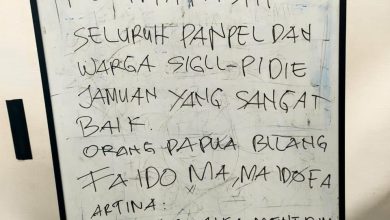 SELURUH PANPEL DAN
WARGA SIGLI-PIDIE
JAMUAN YANG SANGAT
BAIK.
ORANG PAPUA BILANG
FAIDO MA, MAIDOFA
ARTINYA: